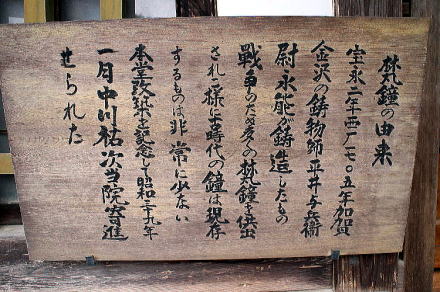 梵鐘の由来
宝永二年西一七〇五年加賀
金沢の鋳物師平井与兵衛
尉永能が鋳造したもの
戦争のため多くの梵鐘を供出
され様に古時代の鐘は現存
するものは非常に少ない
本堂改築を記念して昭和三十九年
一月中川祐次当院寄進
せられた